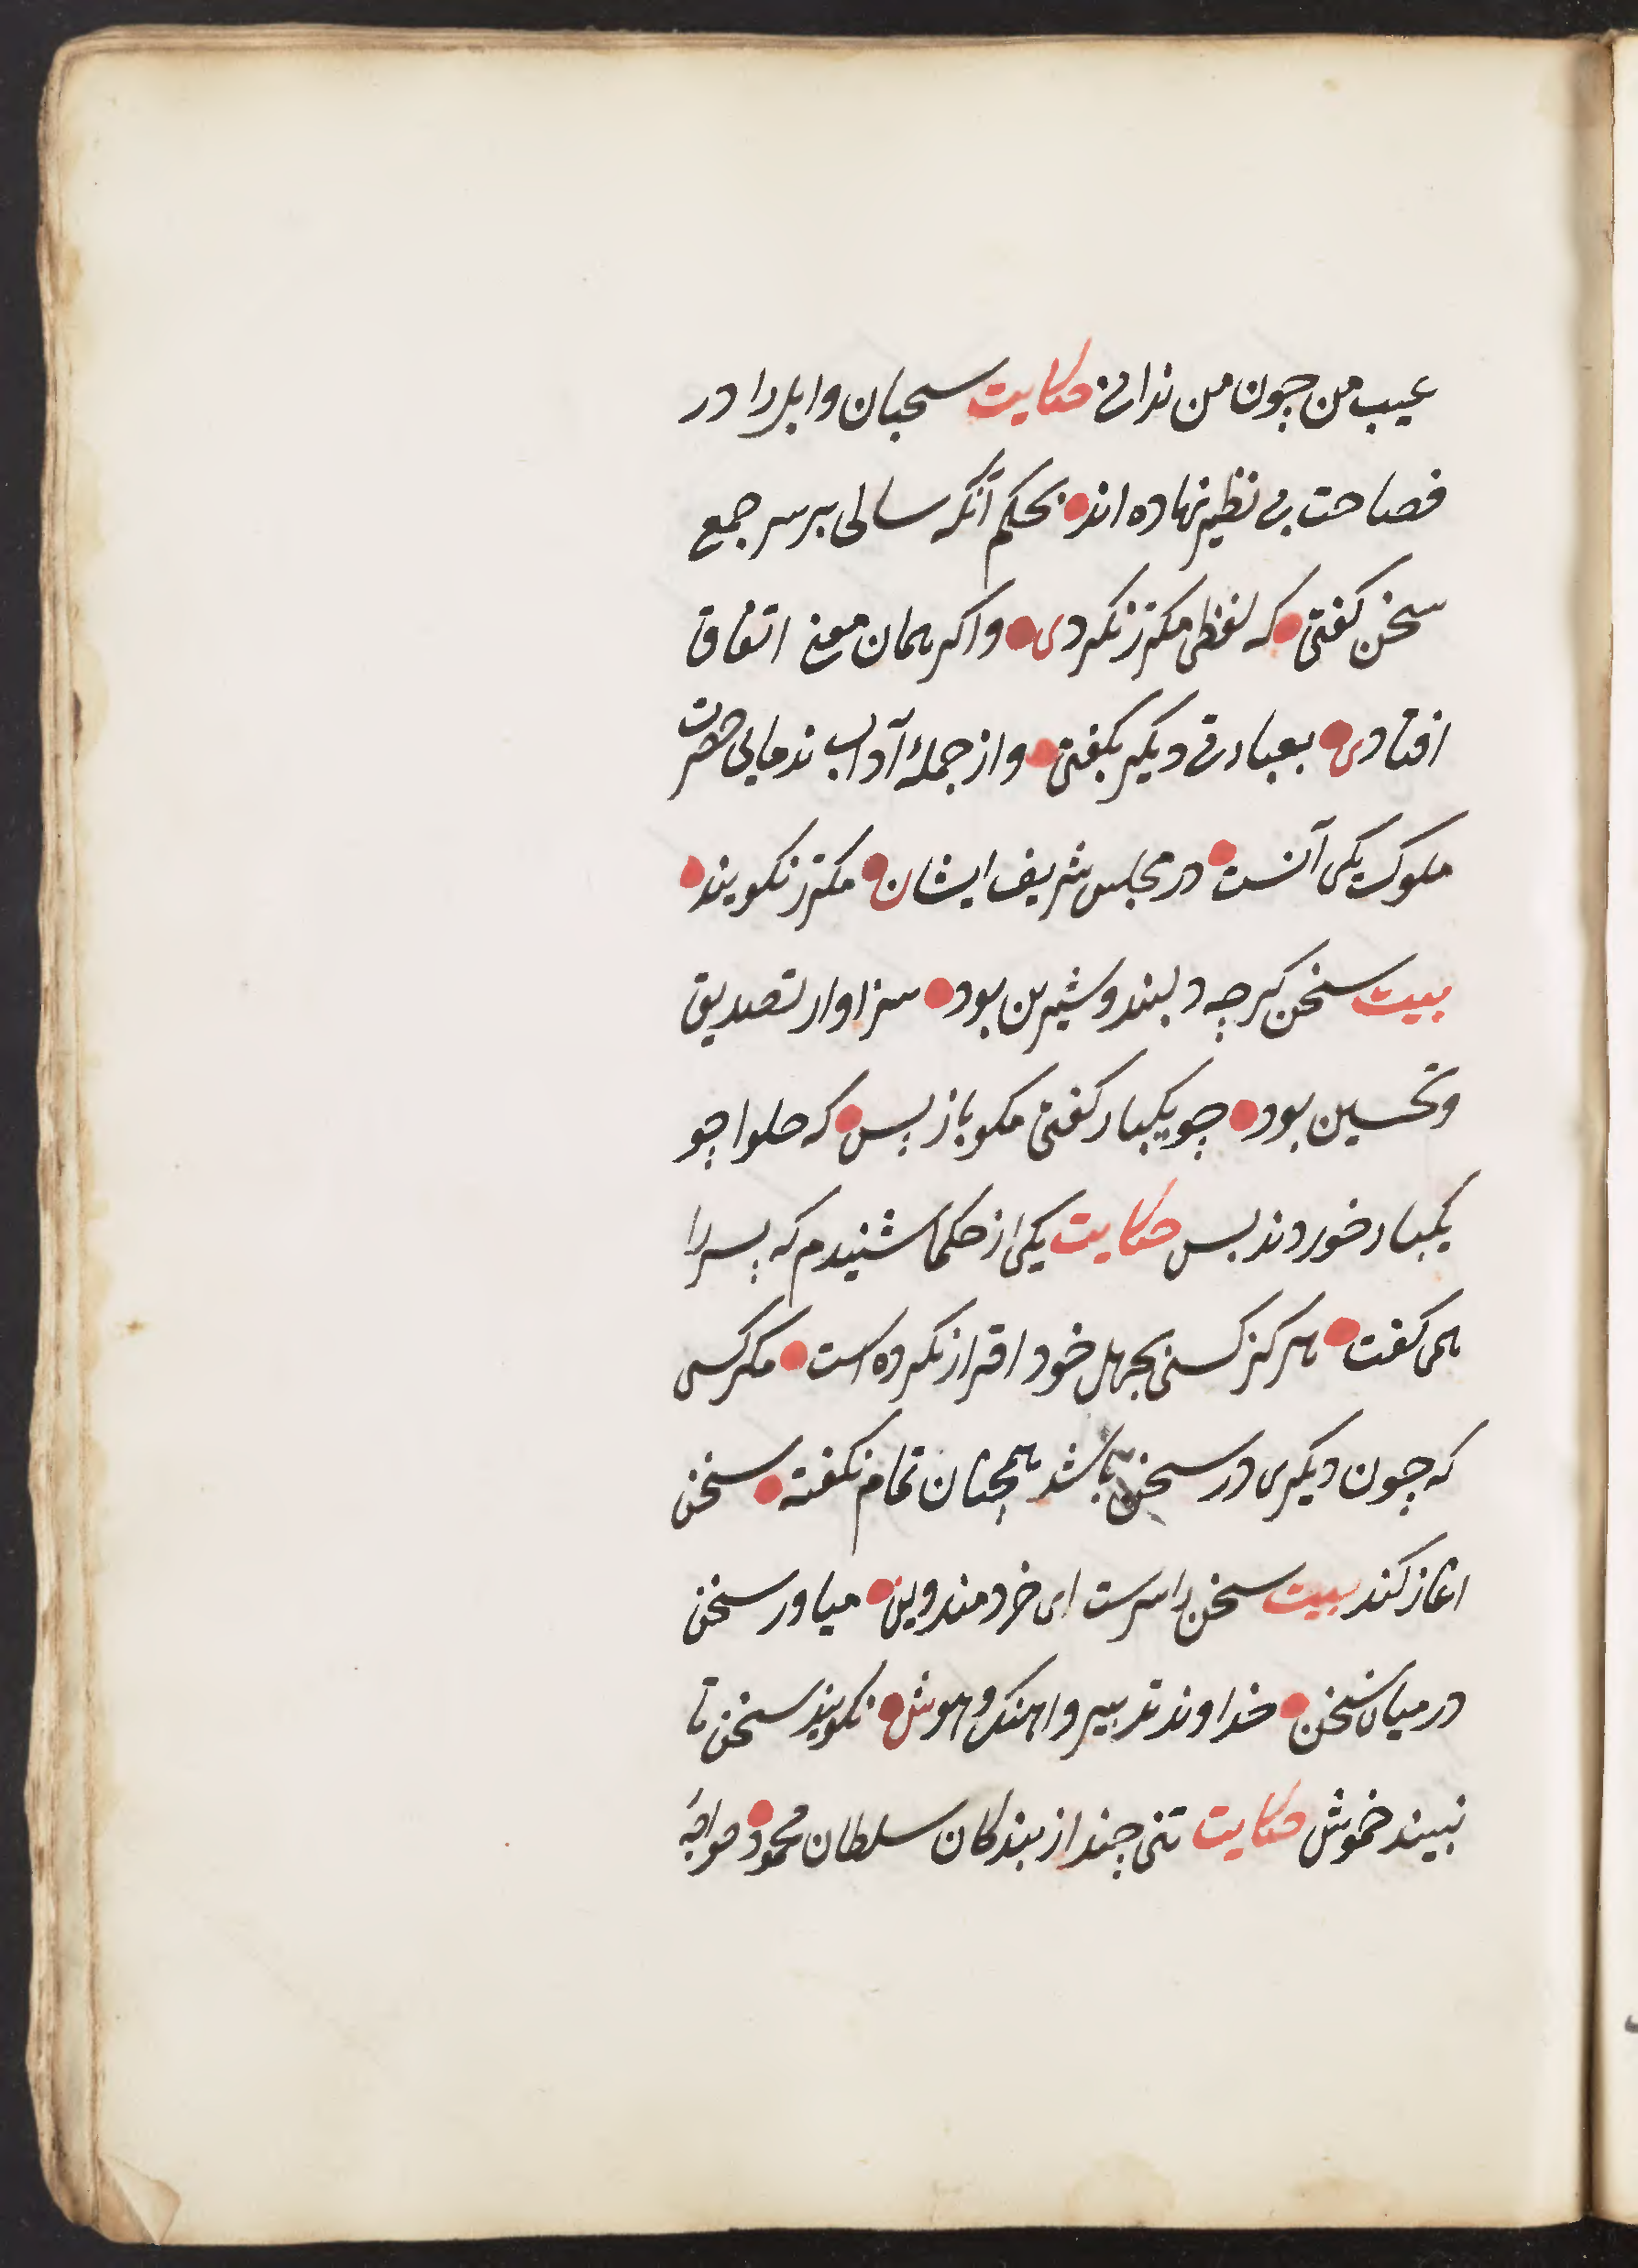 عیب من چون من ندانی حکایت سحبان وایل را در
فصاحت بی نظیر نهاده اند بحکم آنکه سالی بر سر جمع
سخن کفتی که لفظی مکرر نکردی واکر همان معنی اتفاق
افتادی بعبارتی دیکر بکفتی واز جملهٔ آداب ندمایی حضرت
ملوک یکی آنست در مجلس شریف ایشان مکرر نکویند
بیت سخن کرچه دلبند وشیرین بود سزاوار تصدیق
وتحسین بود چو یکبار کفتی مکو باز پس که حلوا چو
یکبار خوردند بس حکایت یکی از حکما شنیدم که پسر را
همی کفت هرکز کسی بجهل خود اقرار نکرده است مکر کسی
که چون دیکری در سخن باشد همچنان تمام نکفته سخن
اغاز کند بیت سخن را سرست ای خردمند وبن میاور سخن
در میان سخن خداوند تدبیر واهنک وهوش نکویند سخن تا
نبیند خموش حکایت تنی چند از بندکان سلطان محمود خواجهٔ